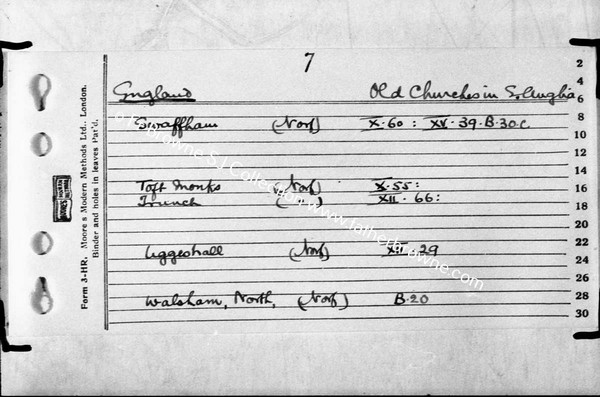 7
England Old Churches in E. Anglia
Swaffham (Norf) X. 60 : XV. 39. B. 30c.
Toft Monks (Norf) X. 55 :
Trunch ( " ) XII. 66 :
Uggeshall (Norf) XII. 29
Walsham, North, (Norf) B. 20
2
4
6
8
10
12
14
16
18
20
22
24
26
28
30
Form 3-HR. Moore's Modern Methods Ltd., London.
Binder and holes in leaves Pat'd.
Fr Browne S.J. Collection www.fatherbrowne.com